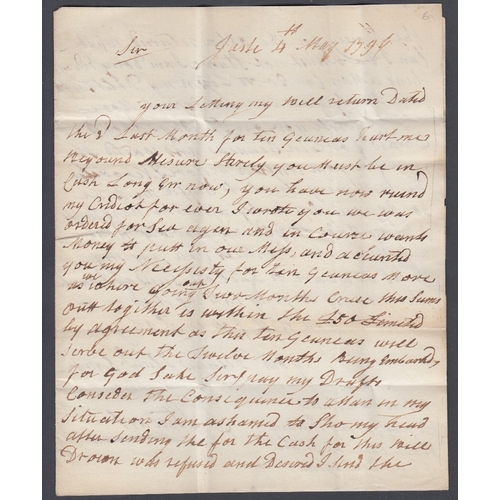 Sir
4th May 1794
your Letting my Will return Dated
the 3d Last Month for ten Geuneas hurt me
Beyound Mesure Surely you Must be in
Cash Long Err now, you have now ruind
my Cridiot for ever I wrote you we was
ordered for Sea again and in Course wants
Money to putt in our Mess, and acqunted
you my Necessity for ten Geuneas More
as we where going out two Months Cruse this Sums
outt together is within the £50 Limited
by agreement as that ten Geuneas will
Serve out the Twelve Months Being Embarked,
for God Sake Sir pay my Drafts
Conseder the Consequence to a Man in my
Situation I am ashamed to Sho my head
after Sending the for the Cash for this Will
Drawn was refused and Desired I Send the